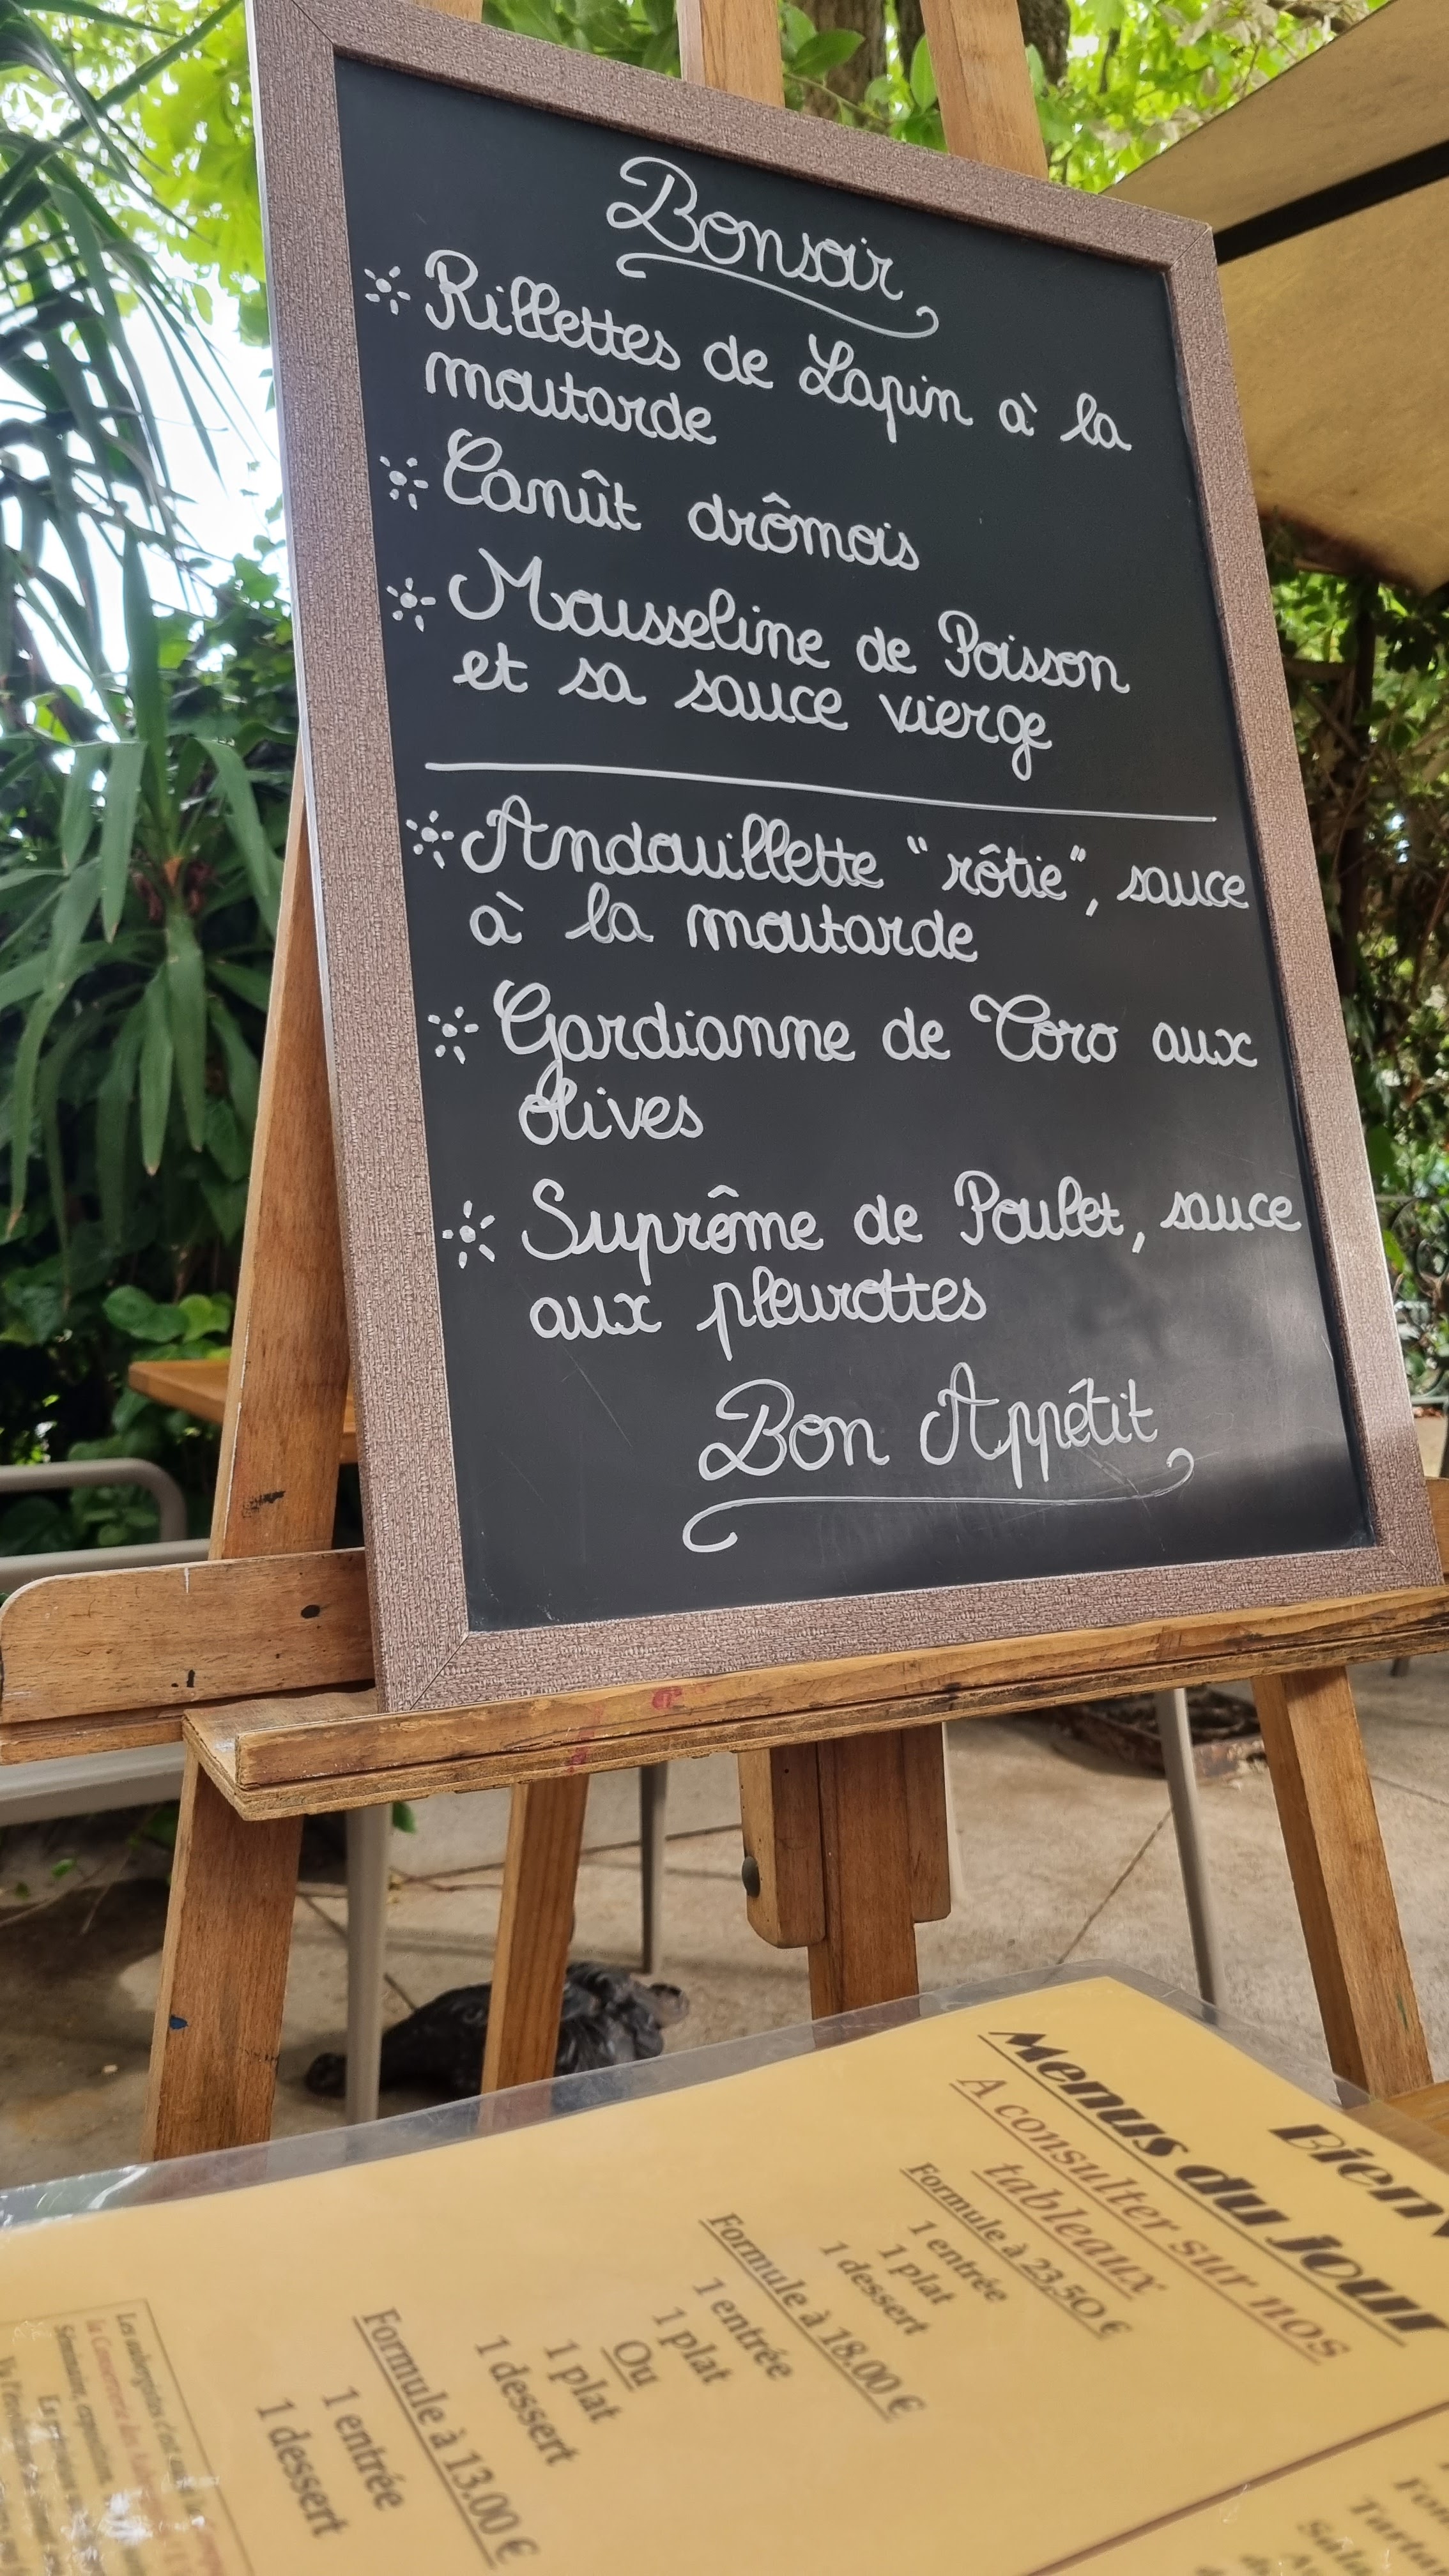 Bonsoir
Rillettes de Lapin à la
moutarde
Canût drômois
Mousseline de Poisson
et sa sauce vierge
Andouillette "rôtie", sauce
à la moutarde
Gardianne de Toro aux
olives
Suprême de Poulet, sauce
aux pleurottes
Bon Appétit
Bienv
Menus du jour
A consulter sur nos
tableaux
Formule à 23,50 €
1 entrée
1 plat
1 dessert
Formule à 18.00 €
1 entrée
1 plat
Ou
1 plat
1 dessert
Formule à 13.00 €
1 entrée
1 dessert